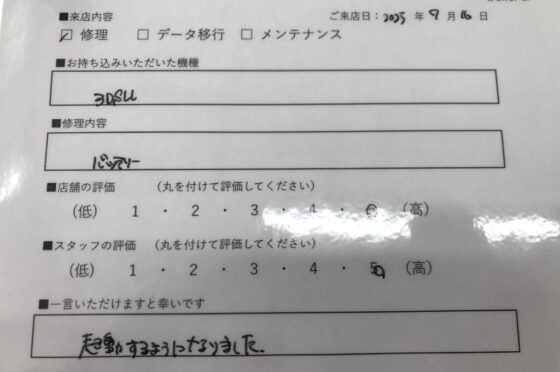 ■来店内容
ご来店日：2025 年 9 月 16 日
☑ 修理 □ データ移行 □ メンテナンス
■お持ち込みいただいた機種
3DSLL
■修理内容
バッテリー
■店舗の評価 （丸を付けて評価してください）
（低） 1 ・ 2 ・ 3 ・ 4 ・ 5 （高）
■スタッフの評価 （丸を付けて評価してください）
（低） 1 ・ 2 ・ 3 ・ 4 ・ 5 （高）
■一言いただけますと幸いです
起動するようになりました。